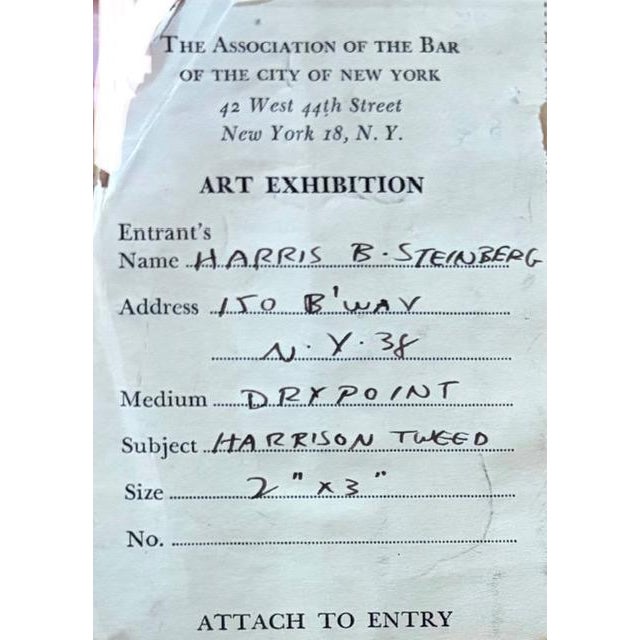 The Association of the Bar
of the city of New York
42 West 44th Street
New York 18, N. Y.
ART EXHIBITION
Entrant's
Name HARRIS B. STEINBERG
Address 150 B'WAY
N. Y. 38
Medium DRYPOINT
Subject HARRISON TWEED
Size 2" x 3"
No.
ATTACH TO ENTRY